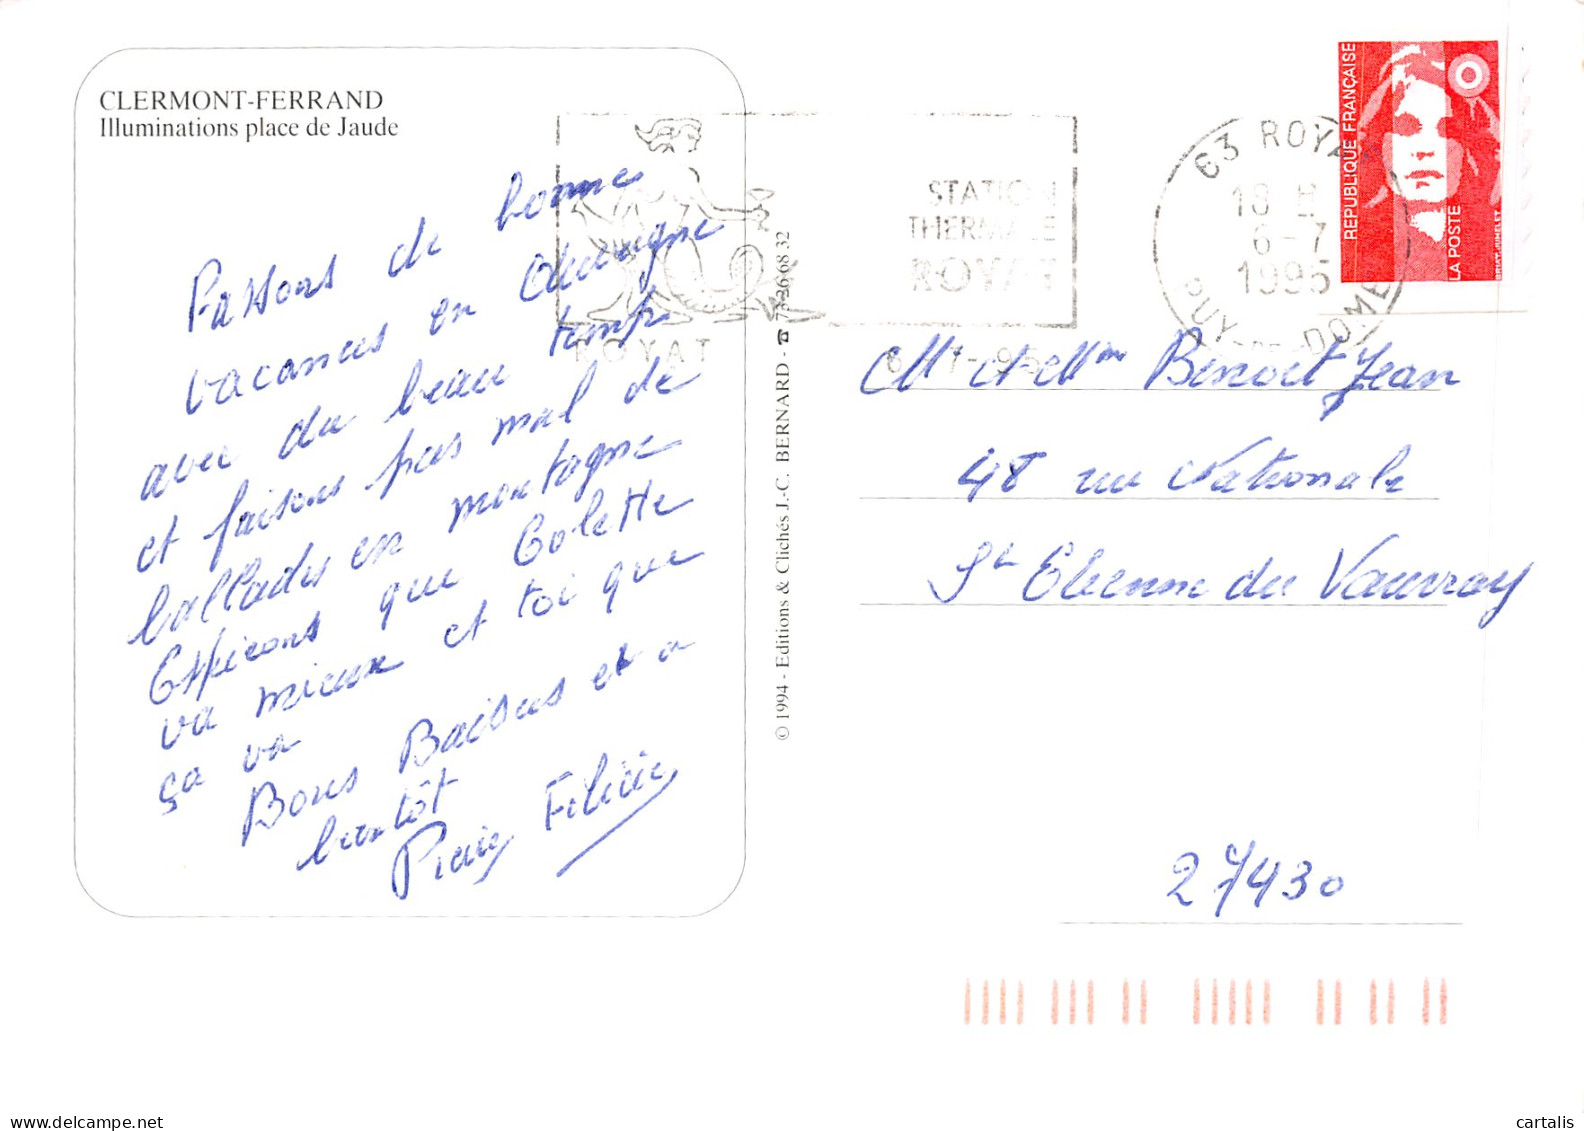 CLERMONT-FERRAND
Illuminations place de Jaude
Passons de bonne
vacances en Auvergne
avec du beau temps
et faisons pas mal de
ballades en montagne
Espérons que Colette
va mieux et toi que
ça va
Bons Baisers et a
bientôt
Pierre Félicie
© 1994 - Editions & Clichés J.-C. BERNARD - ☎ 73 26 68 32
ROYAT
STATION
THERMALE
ROYAT
6-7-95
63 ROYAT
18 H
6-7
1995
PUY-DE-DOME
REPUBLIQUE FRANÇAISE
LA POSTE
BRIAT-JUMELET
Mr et Mme Benoit Jean
48 rue Nationale
St Etienne du Vauvray
27430
delcampe.net
cartalis